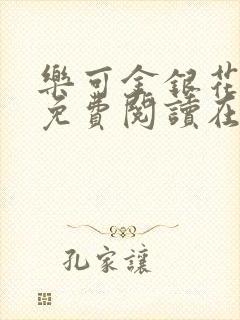 樂可金銀花
免費閱讀在
孔家讓